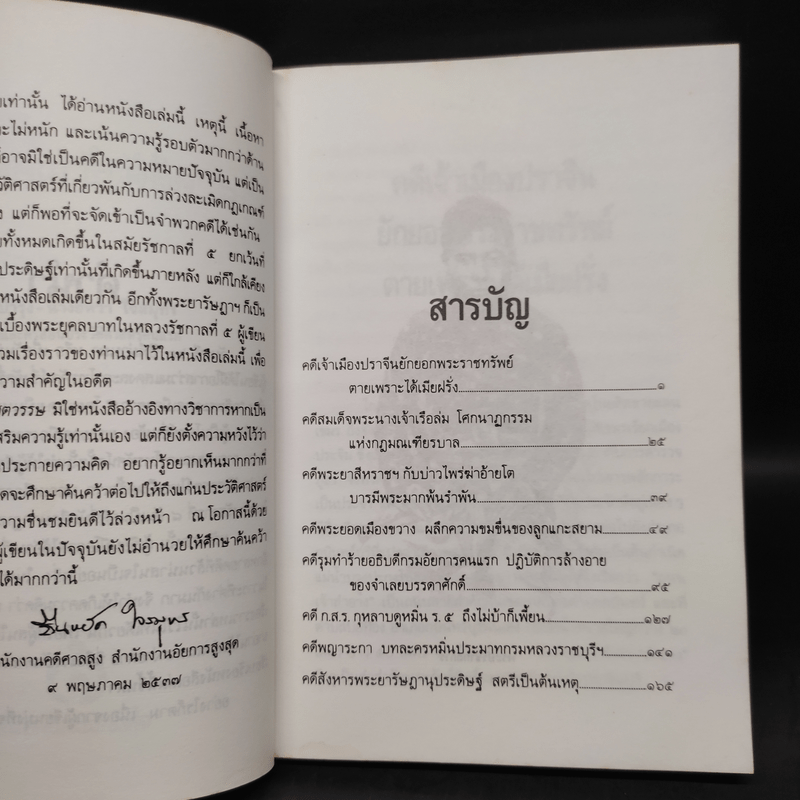 เท่านั้น ได้อ่านหนังสือเล่มนี้ เหตุนี้ เนื้อหา
ะไม่หนัก และเน้นความรู้รอบตัวมากกว่าด้าน
อาจมิใช่เป็นคดีในความหมายปัจจุบัน แต่เป็น
วัติศาสตร์ที่เกี่ยวพันกับการล่วงละเมิดกฎเกณฑ์
แต่ก็พอที่จะจัดเข้าเป็นจำพวกคดีได้เช่นกัน
ทั้งหมดเกิดขึ้นในสมัยรัชกาลที่ ๕ ยกเว้นที่
ประดิษฐ์เท่านั้นที่เกิดขึ้นภายหลัง แต่ก็ใกล้เคียง
หนังสือเล่มเดียวกัน อีกทั้งพระยารัษฎาฯ ก็เป็น
เบื้องพระยุคลบาทในหลวงรัชกาลที่ ๕ ผู้เขียน
วมเรื่องราวของท่านมาไว้ในหนังสือเล่มนี้ เพื่อ
วามสำคัญในอดีต
ศตวรรษ มิใช่หนังสืออ้างอิงทางวิชาการหากเป็น
สริมความรู้เท่านั้นเอง แต่ก็ยังตั้งความหวังไว้ว่า
ประกายความคิด อยากรู้อยากเห็นมากกว่าที่
ดจะศึกษาค้นคว้าต่อไปให้ถึงแก่นประวัติศาสตร์
วามชื่นชมยินดีไว้ล่วงหน้า ณ โอกาสนี้ด้วย
ผู้เขียนในปัจจุบันยังไม่อำนวยให้ศึกษาค้นคว้า
ได้มากกว่านี้
นักงานคดีศาลสูง สำนักงานอัยการสูงสุด
๙ พฤษภาคม ๒๕๓๗
สารบัญ
คดีเจ้าเมืองปราจีนยักยอกพระราชทรัพย์
ตายเพราะได้เมียฝรั่ง....................๑
คดีสมเด็จพระนางเจ้าเรือล่ม โศกนาฏกรรม
แห่งกฎมณเฑียรบาล....................๒๕
คดีพระยาสีหราชฯ กับบ่าวไพร่ฆ่าอ้ายโต
บารมีพระมากพ้นรำพัน....................๓๙
คดีพระยอดเมืองขวาง ผลึกความขมขื่นของลูกแกะสยาม....................๔๙
คดีรุมทำร้ายอธิบดีกรมอัยการคนแรก ปฏิบัติการล้างอาย
ของจำเลยบรรดาศักดิ์....................๙๕
คดี ก.ส.ร. กุหลาบดูหมิ่น ร. ๕ ถึงไม่บ้าก็เพี้ยน....................๑๒๗
คดีพญาระกา บทละครหมิ่นประมาทกรมหลวงราชบุรีฯ....................๑๔๑
คดีสังหารพระยารัษฎานุประดิษฐ์ สตรีเป็นต้นเหตุ....................๑๖๕